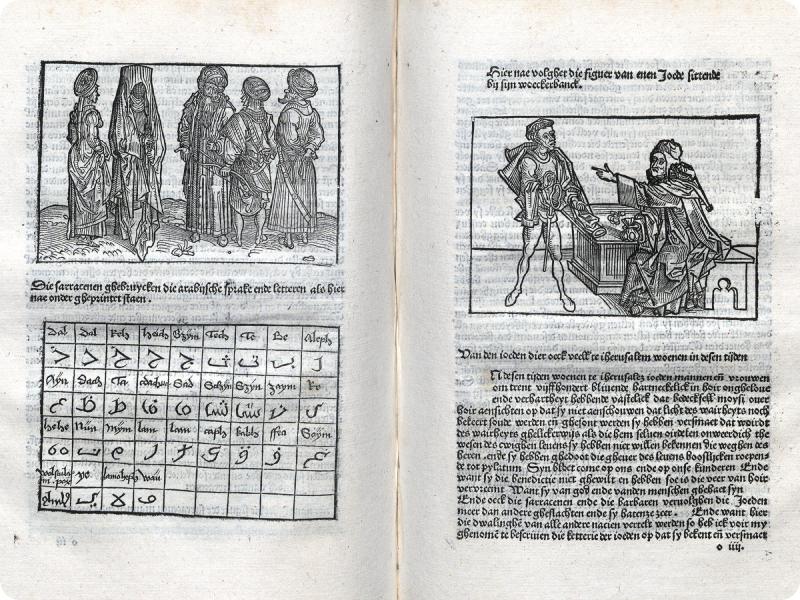 Die sarracenen ghebruycken die arabische sprake ende letteren als hier
nae onder gheprintet staen.
Dal Dal Reh heich Gzim Tech Te Be Aleph
Ayn Dach Ta Sad Schin Szyn zaym Re
hehe Nun Mym lam lam caph kabh ffea Gayn
ye lamaleph wau
Hier nae volghet die figuer van enen Joede sittende
bij sijn woeckerbanck.
Van den ioeden dier oeck veelt te iherusalem woenen in desen tijden
N desen tijden woenen te iherusalez ioeden mannen en̄ vrouwen
om trent vijfhondert blivende hartneckelick in hoir ongheldue
ende verhartheyt hebbende vastelick dat decksell moysi over
hoir aensichten op dat sy niet aenschouwen dat licht des wairheyts noch
bekeert soude werden en̄ ghesont werden sy hebben versmaet dat woirdt
des wairheyts ghellekerwijs als die hem seluen oirdelen onweerdich the
wesen des ewighen leuens sy hebben niet willen bekennen die weghen des
heren . ende sy hebben ghedoot die gheuer des leuens booslicken roepen-
de tot pylatum Syn bloet come op ons ende op onse kinderen Ende
want sy die benedictie niet ghewilt en hebben soe is die veer van hoir
vervreemt Want sy van god ende vanden menschen ghehaet syn
Ende oeck die sarracenen ende die barbaren vervolghen die Joeden
meer dan andere gheslachten ende sy hatenze zeer . Ende want hier
die dwalinghe van alle andere nacien vertelt werden so heb ick voir my
ghenome te bescriuen die ketterie der ioeden op dat sy bekent en̄ versmaet
o iiij.